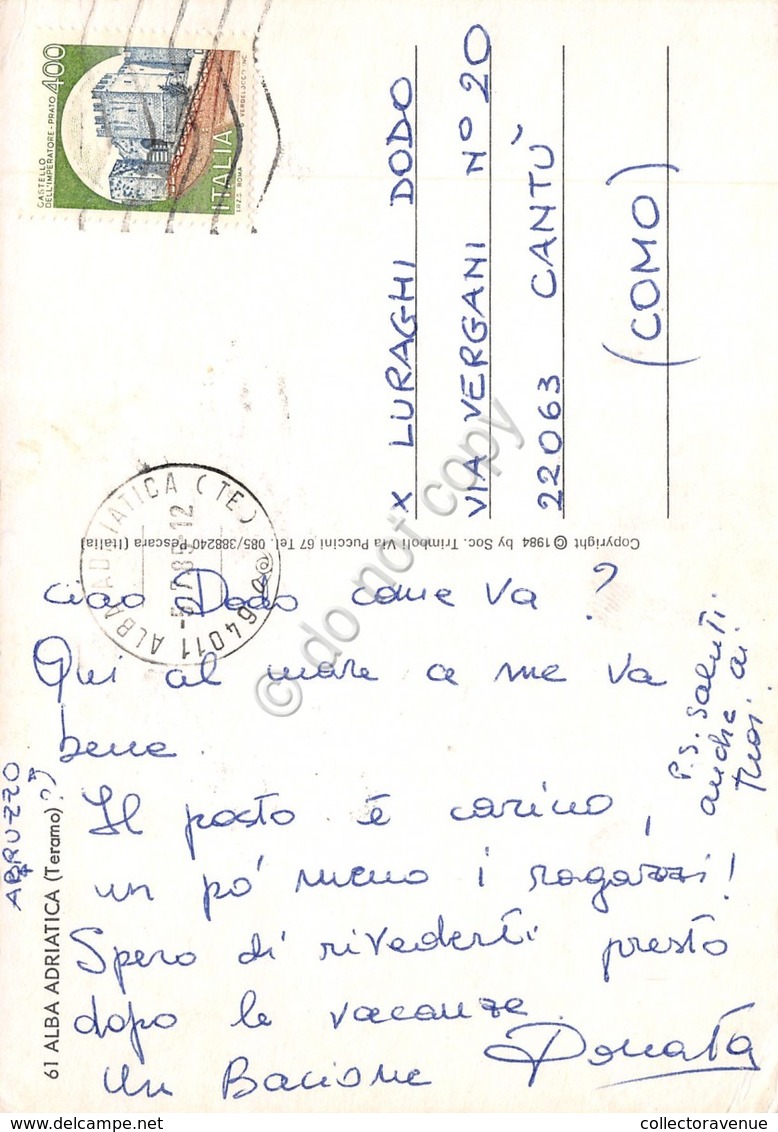 CASTELLO
DELL'IMPERATORE - PRATO 400
ITALIA
I.P.Z.S. ROMA
X LURAGHI DODO
VIA VERGANI N° 20
22063 CANTÙ
(COMO)
64011 ALBA ADRIATICA (TE)
-5.7.85-12
Copyright © 1984 by Soc. Trimboli Via Puccini 67 Tel. 085/388240 Pescara (Italia)
ciao Dodo come va?
Qui al mare a me va
bene.
Il posto è carino,
un po' meno i ragazzi!
Spero di rivederti presto
dopo le vacanze.
Un Bacione Donata
P.S. saluti
anche ai
tuoi.
ABRUZZO
61 ALBA ADRIATICA (Teramo)
© do not copy
collectoravenue.com